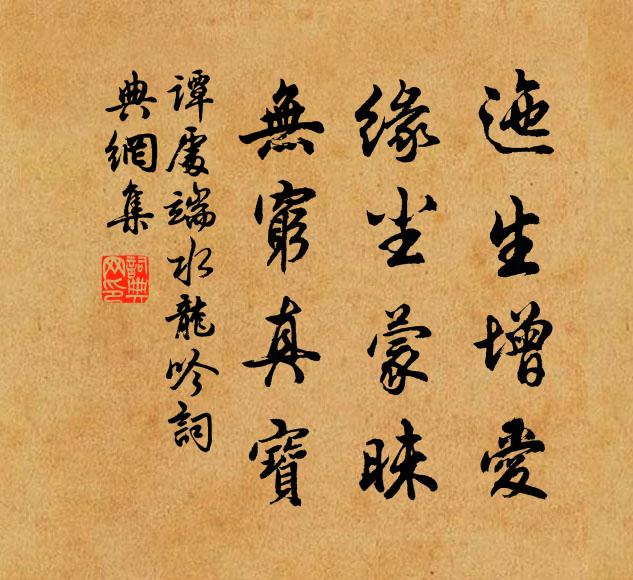 迤生增愛
緣尘蒙昧
無窮真寶
譚處端水龍吟詞
典網集
詞典網印